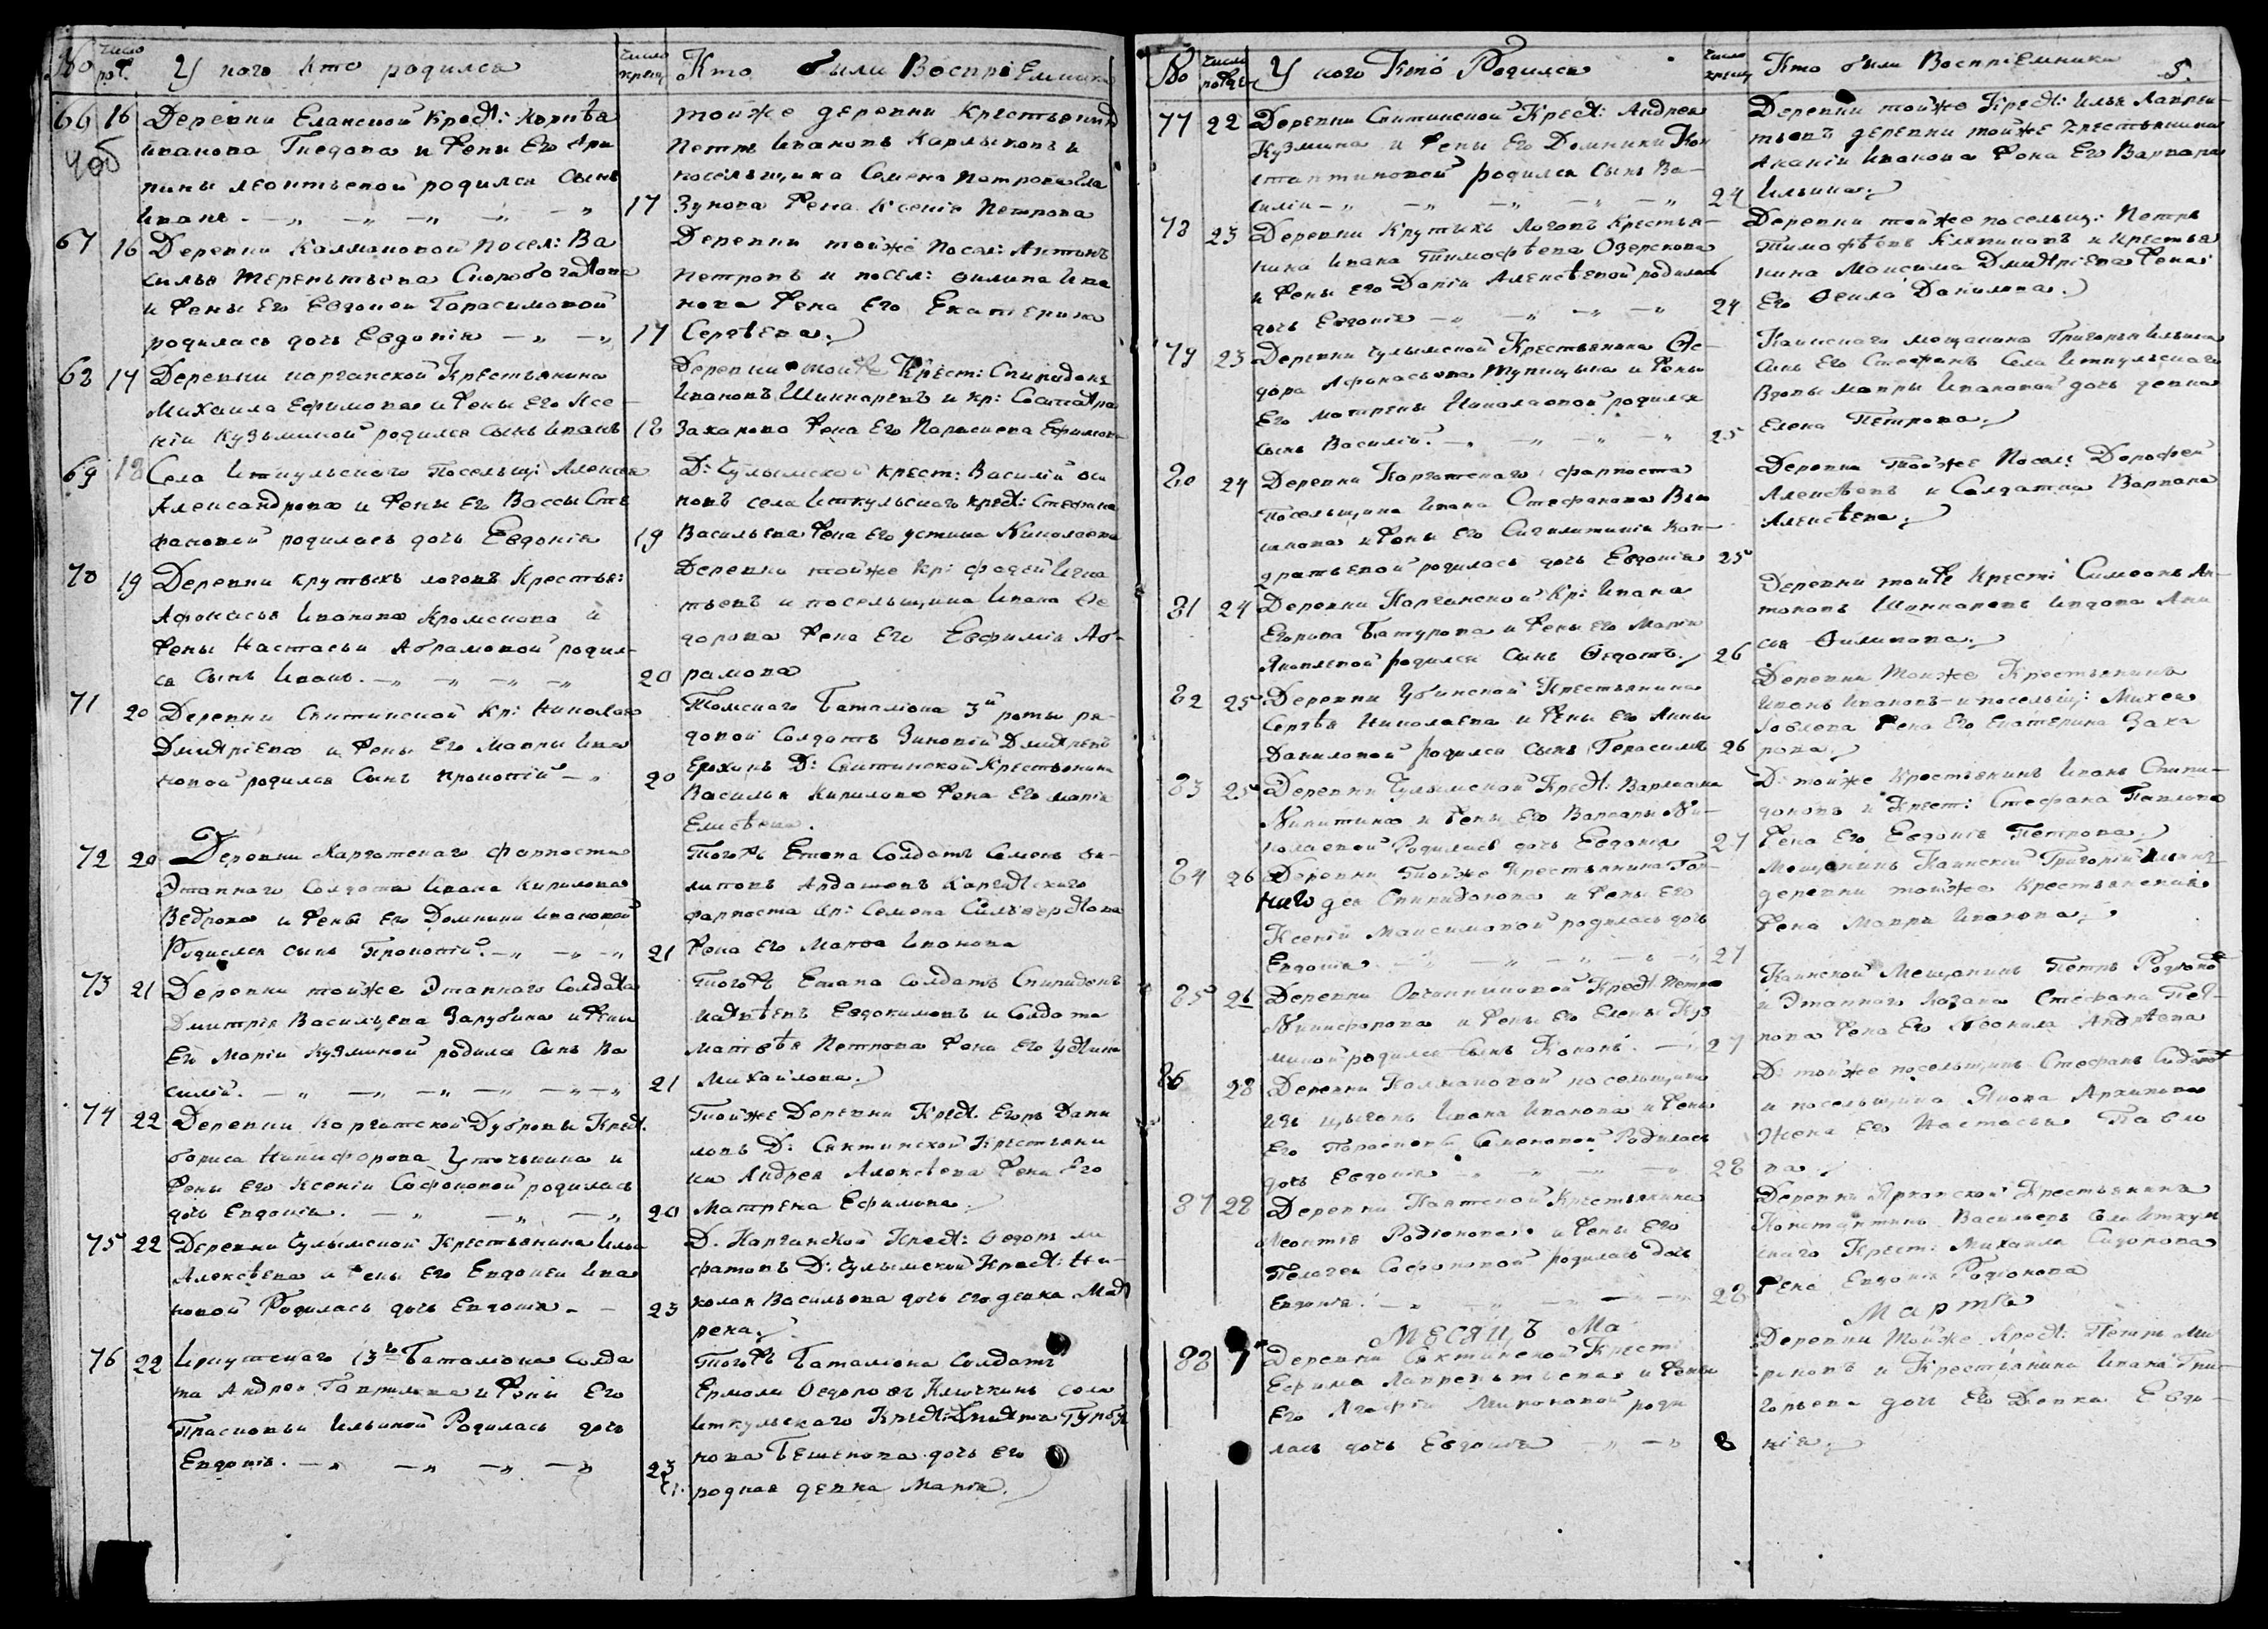 No число рож. У кого кто родился число крещ. Кто были Воспріемники
66 16 Деревни Еланской крест: Корнѣя
406
Иванова Гнедова и жены Его Ари
пины Леонтьевой родился Сынъ
Иванъ. 17
тойже деревни Крестьянинъ
Петръ Ивановъ Карлыковъ и
посельщика Семена Петрова Гла
Зунова жена Ксенія Петрова
67 16 Деревни Калмаковой Посел: Ва
силья Терентьева Скоробогатова
и жены Его Евдокеи Гарасимовой
родилась дочь Евдокія 17
Деревни тойже Посел: Антонъ
Петровъ и посел: Филипа Ива
нова жена Его Екатерина
Сергѣева.
68 17 Деревни каргаской Крестьянина
Михаила Ефимова и жены Его Ксе-
ніи Кузьминой родился Сынъ Иванъ 18
Деревни тойже Крест: Спиридонъ
Ивановъ Шинкаревъ и кр: Сосипатра
Захарова жена Его Параскева Ефимов
69 18 Села Иткульскаго Посельщ: Алексея
Александрова и жены Его Вассы Сте
фановой родилась дочь Евдокія 19
Д: Чулымской крест: Василій Оси
повъ села Иткульскаго крест: Степана
Васильева жена Его Устина Николаева
70 19 Деревни крутыхъ логовъ Крестья:
Афонасья Иванова Кромскова и
жены Настасьи Абрамовой родил-
ся Сынъ Иванъ. 20
Деревни тойже кр: Фадей Игна
тьевъ и посельщика Ивана Фе
дорова жена Его Евфимія Аб-
рамова
71 20 Деревни Сектинской Кр: Николая
Дмитріева и жены Его Мавры Ива
новой родился Сынъ Прокопій 20
Томскаго Баталіона 3й роты ря-
довой Солдатъ Зиновій Дмитревъ
Ерохинъ Д: Сектинской Крестьянина
Василья Кирилова жена Его Марія
Елисѣева.
72 20 Деревни Каргатскаго форпоста
Этапнаго Солдата Ивана Кирилова
Ведрова и жены Его Домники Ивановой
Родился сынъ Прокопій. 21
Тогожъ Етапа Солдатъ Семенъ Фи
липовъ Ардашевъ Каргатскаго
форпоста кр: Семена Силиверстова
жена Его Марфа Иванова
73 21 Деревни тойже Этапнаго Солдата
Дмитрія Васильева Зарубина и жены
Его Маріи Кузминой родился Сынъ Ва
силій. 21
Тогожъ Етапа Солдатъ Спиридонъ
Матвѣевъ Евдокимовъ и Солдата
Матвѣя Петрова жена Его Устина
Михайлова.
74 22 Деревни Каргатской Дубровы Крест.
Бориса Никифорова Уточкина и
жены Его Ксеніи Софоновой родилась
дочь Евдокія. 20
Тойже Деревни Крест. Егоръ Дани
ловъ Д: Сектинской Крестьяни
на Андрея Алексѣева жена Его
Матрена Ефимова.
75 22 Деревни Чулымской Крестьянина Ильи
Алексѣева и жены Его Евдокеи Ива
новой Родилась дочь Евдокія 23
Д. Каргинской Крест: Федоръ
Д: Чулымской Крест: Ни-
колая Васильева дочь его девка Мат
рена.
76 22 Иркутскаго 13го Баталіона солда
та Андрея Гаврилова и жены Его
Прасковьи Ильиной Родилась дочь
Евдокія. 23
Тогожъ Баталіона Солдатъ
Ермолай Федоровъ Ключкинъ села
Иткульскаго Крест:
дочь Его
родная девка Марія.
No число рожд. У кого Кто Родился число крещ Кто были Воспріемники 5.
77 22 Деревни Сектинской Крест: Андрея
Кузмина и жены Его Домники Кон
стантиновой родился сынъ Ва-
силій 24
Деревни тойже Крест: Илья Лаврен-
тьевъ деревни тойже крестьянина
Ананіи Иванова жена Его Варвара
Ильина.
78 23 Деревни Крутыхъ Логовъ Крестья-
нина Ивана Тимофѣева Озерскова
и жены Его Даріи Алексѣевой родилась
дочь Евдокія 24
Деревни тойже посельщ: Петръ
Тимофѣевъ и Крестья
нина Максима Дмитріева жена
Его Фекла Данилова.
79 23 Деревни Чулымской Крестьянина Фе-
дора Афонасьева Тупицына и жены
Его матрены Николаевой родился
сынъ Василій. 25
Каинскаго мещанина Григорья Ильина
Сынъ Его Стефанъ Села Иткульскаго
Вдовы мавры Ивановой дочь девка
Елена Петрова.
80 24 Деревни Каргатскаго форпоста
Посельщика Ивана Стефанова
и жены Его Кон-
дратьевой родилась дочь Евдокія 25
Деревни Тойже Посел: Дорофей
Алексѣевъ и Солдатка Варвара
Алексѣева.
81 24 Деревни Каргинской Кр: Ивана
Егорова Батурова и жены его Маріи
Яковлевой родился сынъ Федотъ. 26
Деревни тойже Крест: Симеонъ Ан-
тоновъ Шинкаревъ Вдова Ани
сья Филипова.
82 25 Деревни Убинской Крестьянина
Сергѣя Николаева и жены Его Анны
Даниловой родился сынъ Герасимъ 26
Деревни Тойже Крестьянинъ
Иванъ Ивановъ и посельщ: Михея
жена Его Екатерина Заха
рова.
83 25 Деревни Чулымской Крест: Варлаама
Никитина и жены Его Варвары Ни-
колаевой Родилась дочь Евдокія 27
Д: тойже Крестьянинъ Иванъ Спири-
доновъ и Крест: Стефана Павлова
жена Его Евдокія Петрова.
84 26 Деревни Тойже Крестьянина Гор-
дея Спиридонова и жены Его
Ксеніи Максимовой родилась дочь
Евдокія. 27
Мещанинъ Каинскій Григорій Ильинъ
деревни тойже Крестьянская
жена Мавра Иванова.
85 26 Деревни Овчинниковой Крест. Петра
Никифорова и жены Его Елены Куз
миной родился Сынъ Кононъ. 27
Каинской Мещанинъ Петръ Родіоно
и Этапнаго Стефана
жена Его Неонила Андрѣева
86 28 Деревни Колмаковой посельщика
изъ цыганъ Ивана Иванова и жены
Его Парасковьи Семеновой Родилась
дочь Евдокія 28
Д: тойже посельщикъ Стефанъ Сидоро
и посельщика Якова Архипова
жена Его Настасья Павло
ва.
87 28 Деревни Крестьянина
Леонтія Родіонова и жены Его
Пелагеи Софоновой родилась дочь
Евдокія. 28
Деревни Крестьянинъ
Константинъ Васильевъ Села Иткуль
скаго Крест: Михаила Сидорова
жена Евдокія Родіонова
МЕСЯЦЪ Ма Марта
88 7 Деревни Сектинской Крест:
Ефима Лаврентьева и жены
Его Агафіи Мироновой роди
лась дочь Евдокія 8
Деревни Тойже Крест: Петръ Ми
роновъ и Крестьянина Ивана Гри-
горьева дочь Его Девка Евдо-
кія.